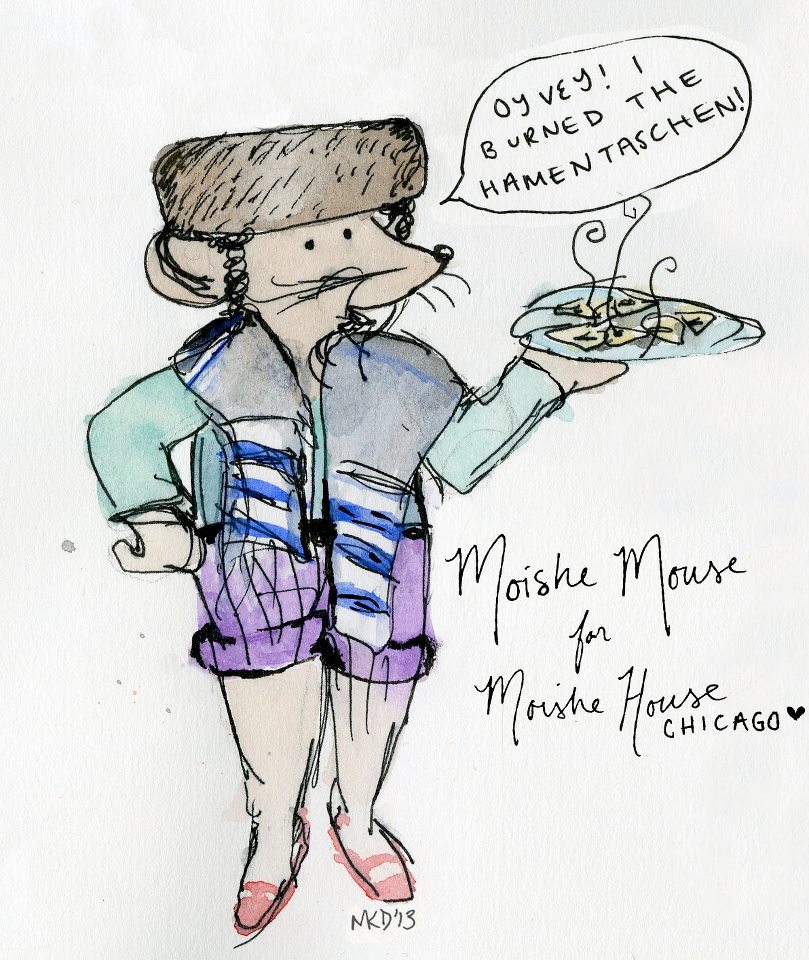 OY VEY! I
BURNED THE
HAMENTASCHEN!
Moishe Mouse
for
Moishe House
CHICAGO ♥
NKD'13